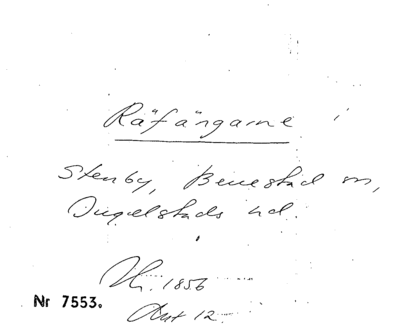 Räfångarne
Stenby, Benestad sn,
Ingelstads hd.
1856
Nr 7553.
12